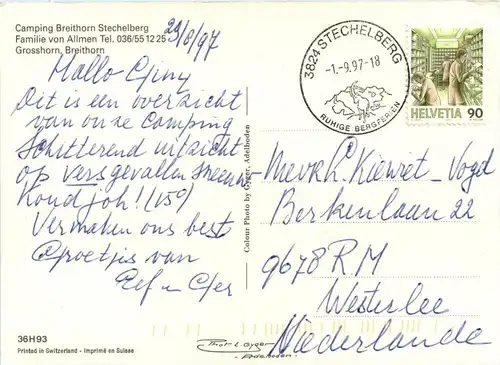 Camping Breithorn Stechelberg
Familie von Allmen Tel. 036/55 12 25
Grosshorn, Breithorn
29/8/97
Hallo
Dit is een overzicht
van onze Camping
Schitterend uitzicht
op vers gevallen sneeuw
Koud joh! (15°)
Vermaken ons best
Groetjes van
Eef
36H93
Printed in Switzerland - Imprimé en Suisse
Colour Photo by Gyger, Adelboden
3824 STECHELBERG
-1.-9.97-18
RUHIGE BERGFERIEN
HELVETIA 90
Kiewiet - Vogd
Berkenlaan 22
9678 RM
Westerlee
Nederlande
Thos. L. Gyger
Adelboden